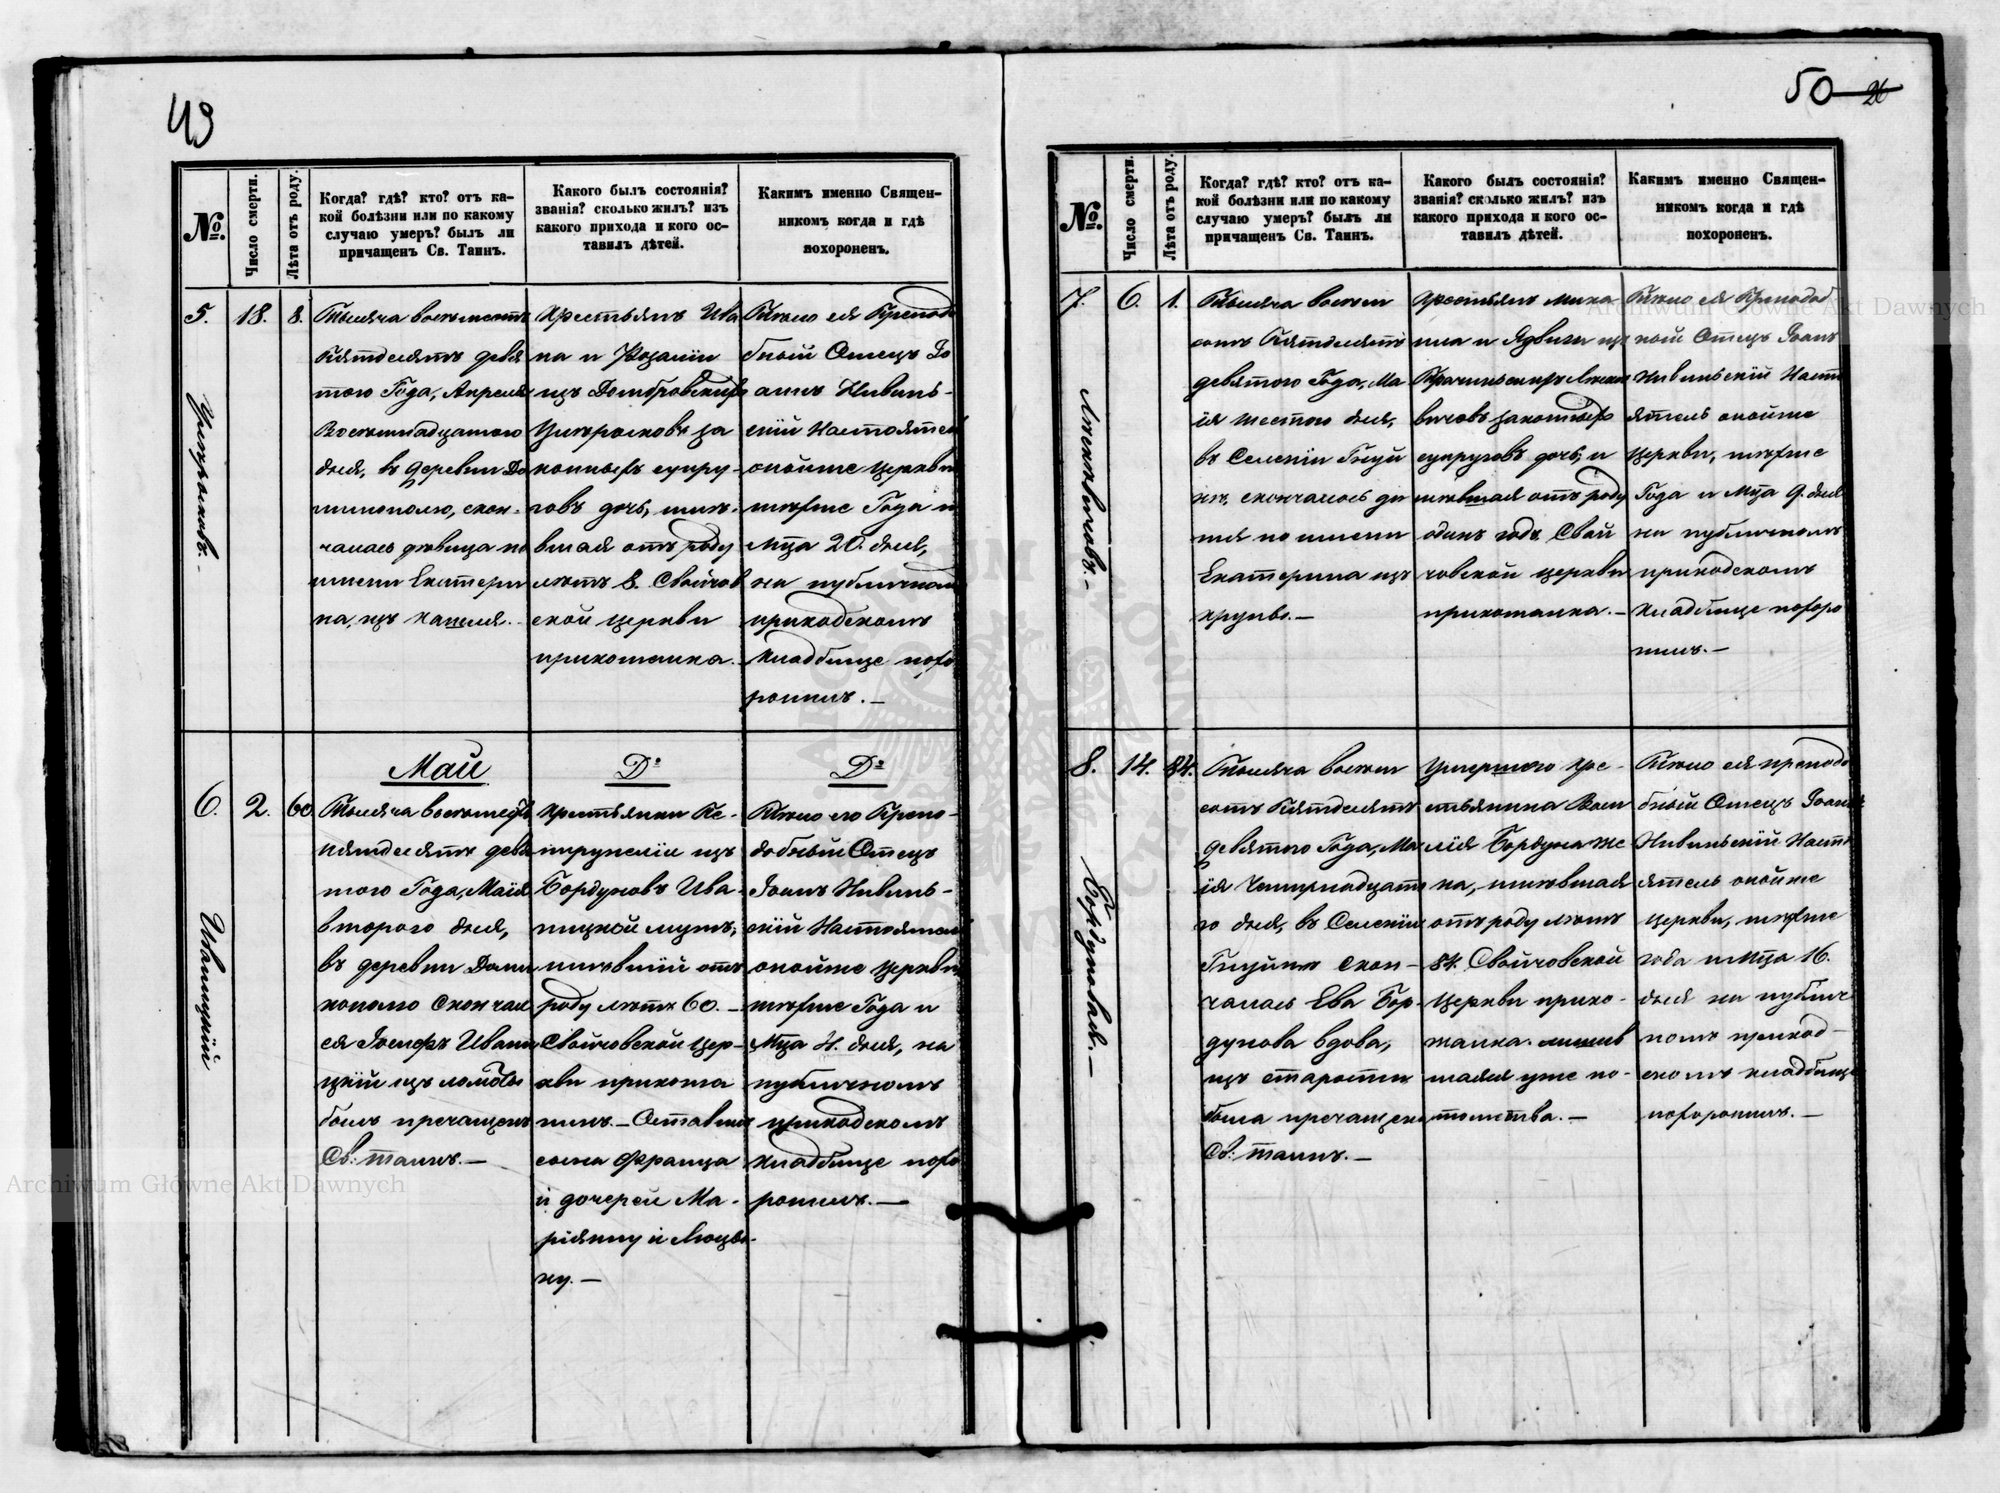 49
№.
Число смерти.
Лѣта отъ роду.
Когда? гдѣ? кто? отъ ка-
кой болѣзни или по какому
случаю умеръ? былъ ли
причащенъ Св. Таинъ.
Какого былъ состоянія?
званія? сколько жилъ? изъ
какого прихода и кого ос-
тавилъ дѣтей.
Какимъ именно Священ-
никомъ когда и гдѣ
похороненъ.
5.
18.
8.
Тысяча восемьсотъ
Пятдесятъ девя
таго Года, Апреля
Восемнадцатого
дня, въ деревни До
минополю, скон-
чалась девица по
имени Екатери
на, изъ кашля.-
Хрестьянъ Ива
на и Розаліи
изъ Домбровских
законныхъ супру-
говъ дочь, имѣ-
вшая отъ роду
лѣтъ 8. Свойчов
ской церкви
прихожанка.-
Тѣло ея Преподо
бный Отецъ Іо
аннъ Нивинь-
скій Настоятел
онойже церкви
тогоже Года и
Мца 20. дня,
на публичном
приходскомъ
кладбище похо
ронилъ.-
Май
D°
D°
6.
2.
60.
Ивашуцкій
Тысяча восемьсотъ
пятдесятъ девя
того Года, Маія
второго дня,
въ деревни Доми
нополю Скончал
ся Іосифъ Иваш
цкій изъ ломоты
былъ причащенъ
Св: таинъ.-
Бордуновъ Ива-
мужъ,
имѣвшій отъ
роду лѣтъ 60.-
Свойчовской цер-
кви прихожа
нинъ.- Оставилъ
сына Франца
и дочерей Ма-
ріянну и Люцы-
ну.-
Тѣло его Препо-
добный Отецъ
Іоанъ Нивинь-
скій Настоятел
онойже церкви
тогоже Года и
Мца 4. дня, на
публичномъ
приходскомъ
кладбище похо
ронилъ.-
50
26
№.
Число смерти.
Лѣта отъ роду.
Когда? гдѣ? кто? отъ ка-
кой болѣзни или по какому
случаю умеръ? былъ ли
причащенъ Св. Таинъ.
Какого былъ состоянія?
званія? сколько жилъ? изъ
какого прихода и кого ос-
тавилъ дѣтей.
Какимъ именно Священ-
никомъ когда и гдѣ
похороненъ.
7.
6.
1.
Тысяча восем
сотъ Пятдесятъ
девятого Года, Ма
ія шестого дня,
въ Селеніи
скончалось ди
тя по имени
Екатерина изъ
крупы.-
Хрестьянъ Миха
ила и Ядвиги изъ
законных
супруговъ дочь, и
мѣвшая отъ роду
одинъ годъ. Свой
човской церкви
прихожанка.-
Тѣло ея Преподоб
ной Отецъ Іоанъ
Нивиньскій Насто
ятель онойже
церкви, тогоже
Года и Мца 9. дня
на публичномъ
приходскомъ
кладбище похоро
нилъ.-
8.
14.
84.
Бордуновая.-
Тысяча восем
сотъ Пятдесятъ
девятого Года, Ма
ія Четырнадцато
го дня, въ Селеніи
Скон-
чалась Ева Бор-
дунова вдова,
изъ старости
была причащена
Св: таинъ.-
Умершого Хре-
стьянина Васи
лія Бордуна же
на, имѣвшая
отъ роду лѣтъ
84. Свойчовской
Церкви прихо-
жанка.
шаяся уже по-
томства.-
Тѣло ея преподо
бный Отецъ Іоанъ
Нивиньскій Насто
ятель онойже
церкви, тогоже
года и Мца 16.
дня на публич
номъ приход-
скомъ кладбище
похоронилъ.-
Archiwum Główne Akt Dawnych
Archiwum Główne Akt Dawnych